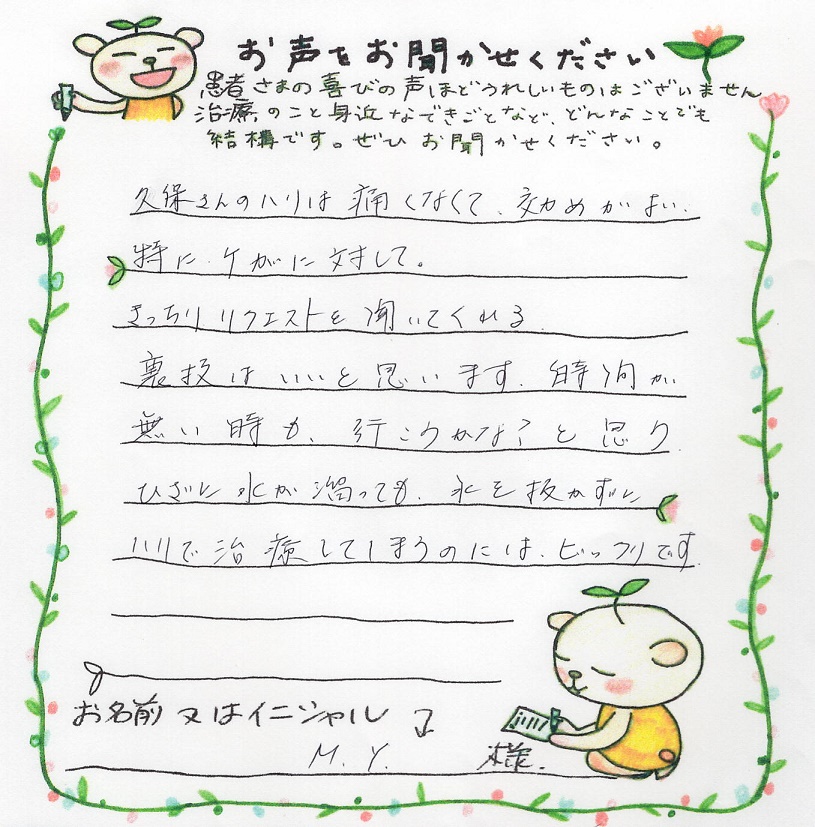 お声をお聞かせください
患者さまの喜びの声ほどうれしいものはございません
治療のこと身近なできごとなど、どんなことでも
結構です。ぜひ お聞かせください。
久保さんのハリは 痛くなくて、効めがよい、
特に、ケガに対して。
きっちりリクエストを聞いてくれる
裏技はいいと思います、時間が
無い時も、行こうかな?と思う
ひざに水が溜っても、水を抜かずに
ハリで治療してしまうのには、ビックリです
お名前又はイニシャル
M.Y. 様.